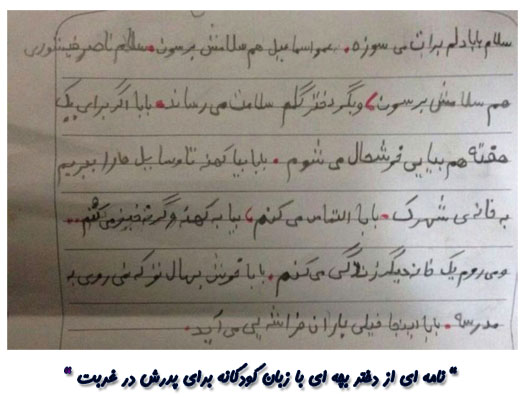 سلام بابا دلم برات می سوزه. عمو اسماعیل هم سلامش برسون. سلام ناصر
هم سلامش برسون، وبگو دختر گلم سلامت می رساند. بابا اگر برای یک
هفته هم بیایی خوشحال می شوم. بابا بیا کهنه تا وسایل مارا ببریم
به خانه ی شهرک. بابا التماس می کنم، بیا به کهنه وگرنه
ومی روم یک خانه دیگر زندگی می کنم. بابا خوش بهال تو که نمی روی به
مدرسه. بابا اینجا خیلی باران می آید.
“ نامه ای از دختر بچه ای با زبان کودکانه برای پدرش در غربت “